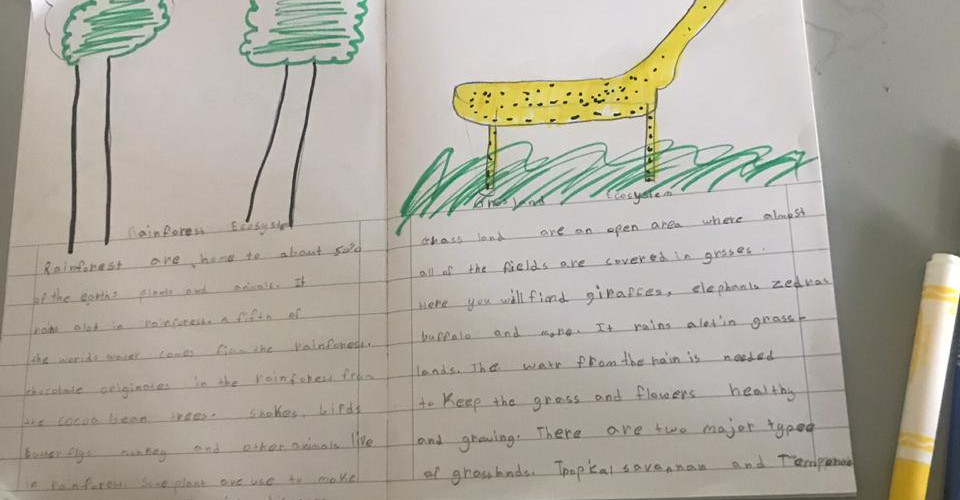 Rainforest Ecosyst
Rainforest are home to about 50%
of the earths plants and animals. It
rains alot in rainforest. a fifth of
the worlds water comes from the rainforest.
chocolate originates in the rainforest from
the cocoa bean trees. Snakes, birds
and other animals live
in rainforest. Some plant are use to make
Grassland Ecosystem
Grass land are an open area where almost
all of the fields are covered in grasses.
Here you will find giraffes, elephants zedras
buffalo and more. It rains alot in grass-
lands. The watr from the rain is needed
to keep the grass and flowers healthy
and growing. There are two major types
of grasslands. Tropical savannah and